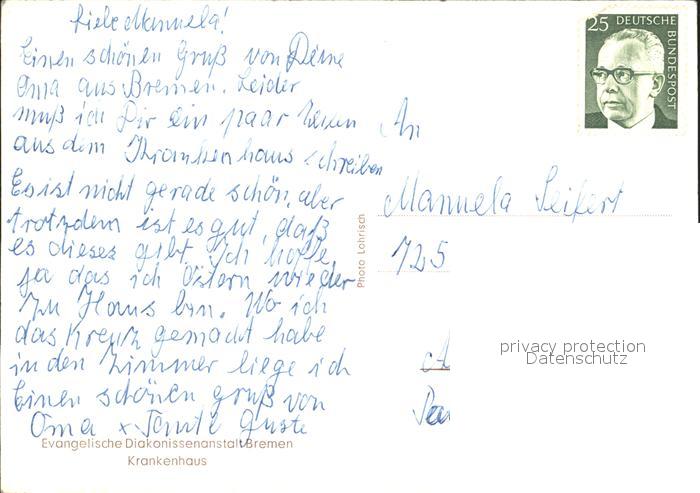 Liebe Manuela!
Einen schönen Gruß von Deine
Oma aus Bremen. Leider
muß ich Dir ein paar Zeilen
aus dem Krankenhaus schreiben
Es ist nicht gerade schön, aber
trotzdem ist es gut, daß
es dieses gibt. Ich hoffe
ja das ich Ostern wieder
zu Haus bin. Wo ich
das Kreutz gemacht habe
in den Zimmer liege ich
Einen schönen gruß von
Oma x Tante Guste
Evangelische Diakonissenanstalt Bremen
Krankenhaus
Photo Lohrisch
25 DEUTSCHE
BUNDESPOST
An
Manuela Seifert
725
privacy protection
Datenschutz